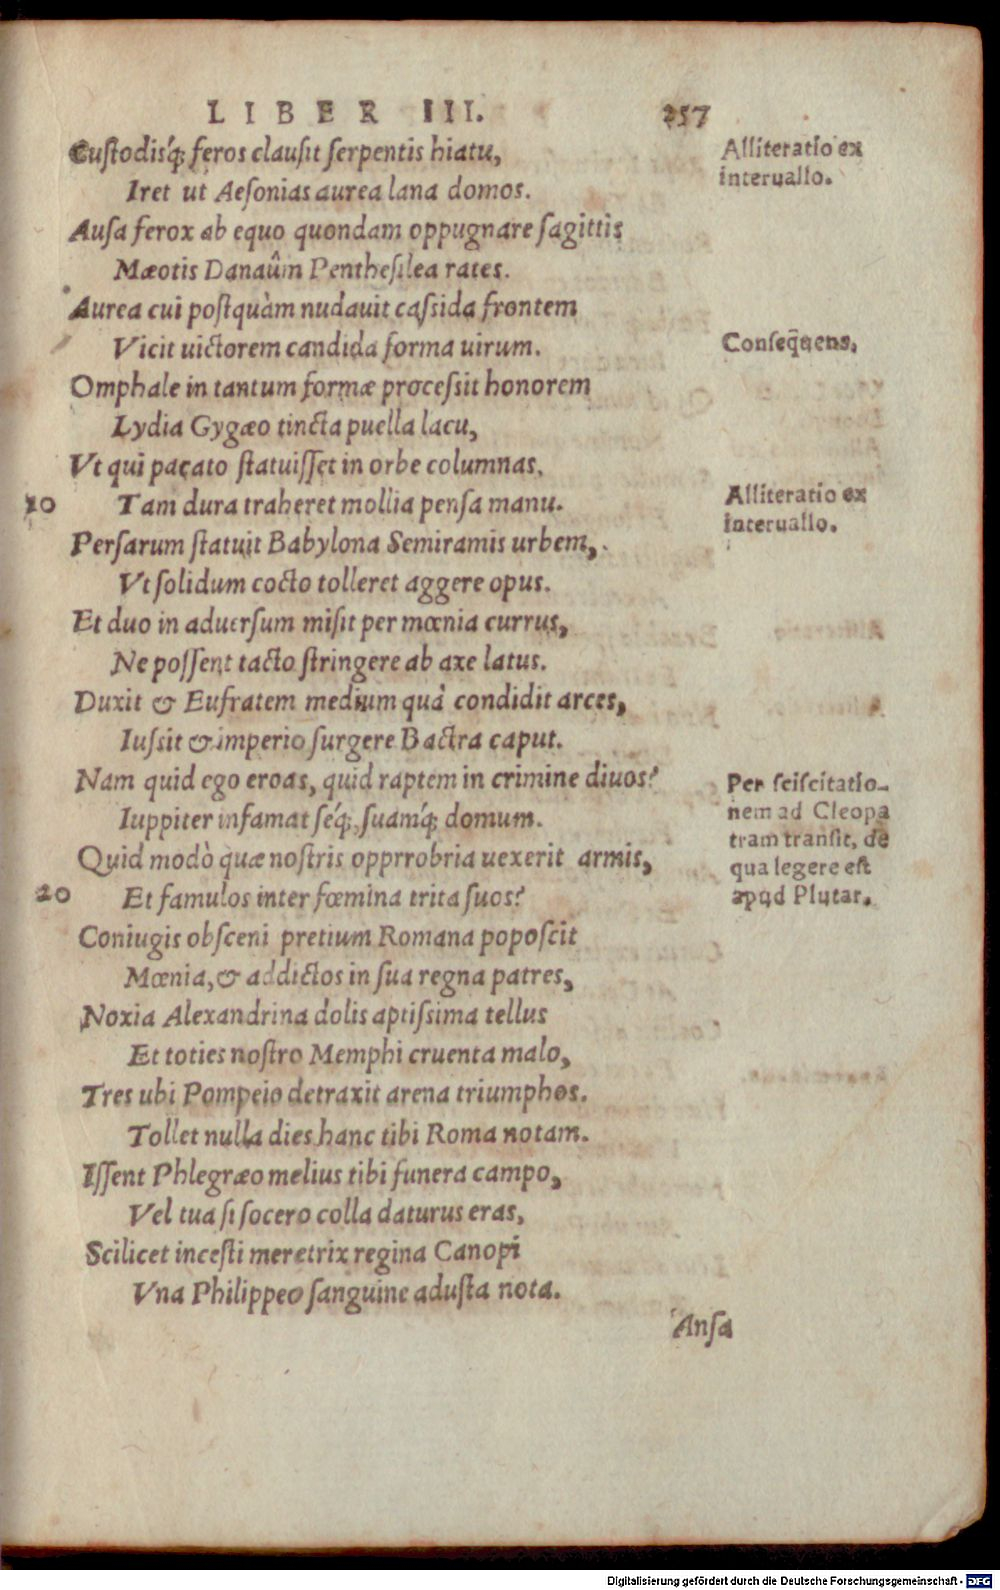 LIBER III. 257
Custodisq́; feros clausit serpentis hiatu,
Iret ut Aesonias aurea lana domos.
Ausa ferox ab equo quondam oppugnare sagittis
Mæotis Danaûm Penthesilea rates.
Aurea cui postquàm nudauit cassida frontem
Vicit uictorem candida forma uirum.
Omphale in tantum formæ processit honorem
Lydia Gygæo tincta puella lacu,
Vt qui pacato statuisset in orbe columnas,
10 Tam dura traheret mollia pensa manu.
Persarum statuit Babylona Semiramis urbem,
Vt solidum cocto tolleret aggere opus.
Et duo in aduersum misit per mœnia currus,
Ne possent tacto stringere ab axe latus.
Duxit & Eufratem medium quà condidit arces,
Iussit & imperio surgere Bactra caput.
Nam quid ego eroas, quid raptem in crimine diuos?
Iuppiter infamat séq́;, suamq́; domum.
Quid modò quæ nostris opprrobria uexerit armis,
20 Et famulos inter fœmina trita suos?
Coniugis obsceni pretium Romana poposcit
Mœnia, & addictos in sua regna patres,
Noxia Alexandrina dolis aptissima tellus
Et toties nostro Memphi cruenta malo,
Tres ubi Pompeio detraxit arena triumphos.
Tollet nulla dies hanc tibi Roma notam.
Issent Phlegræo melius tibi funera campo,
Vel tua si socero colla daturus eras,
Scilicet incesti meretrix regina Canopi
Vna Philippeo sanguine adusta nota.
Ansa
Alliteratio ex
interuallo.
Conseq̃uens,
Alliteratio ex
interuallo.
Per sciscitatio-
nem ad Cleopa
tram transit, de
qua legere est
apud Plutar.
Digitalisierung gefördert durch die Deutsche Forschungsgemeinschaft - DFG